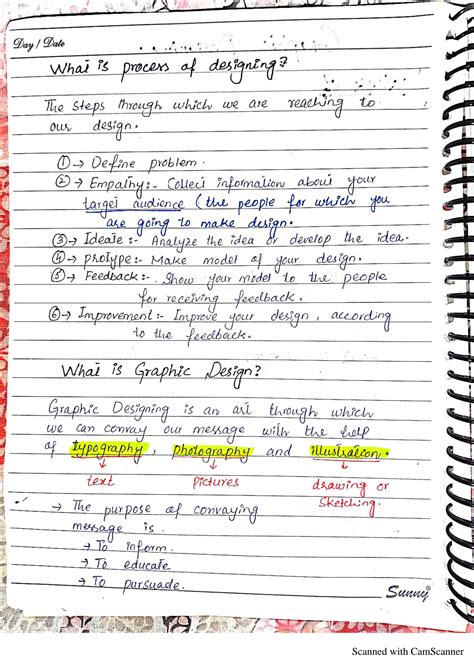 Day / Date
What is process of designing?
The steps through which we are reaching to
our design.
①→ Define problem.
②→ Empathy:- Collect information about your
target audience (the people for which you
are going to make design.
③→ Ideate :- Analyze the idea or develop the idea.
④→ protype:- Make model of your design.
⑤→ Feedback:- Show your model to the people
for receiving feedback.
⑥→ Improvement:- Improve your design, according
to the feedback.
What is Graphic Design?
Graphic Designing is an art through which
we can convay our message with the help
of typography, photography and illustration.
text pictures drawing or
sketching.
→ The purpose of convaying
message is.
→ To inform.
→ To educate
→ To pursuade.
Sunny
Scanned with CamScanner